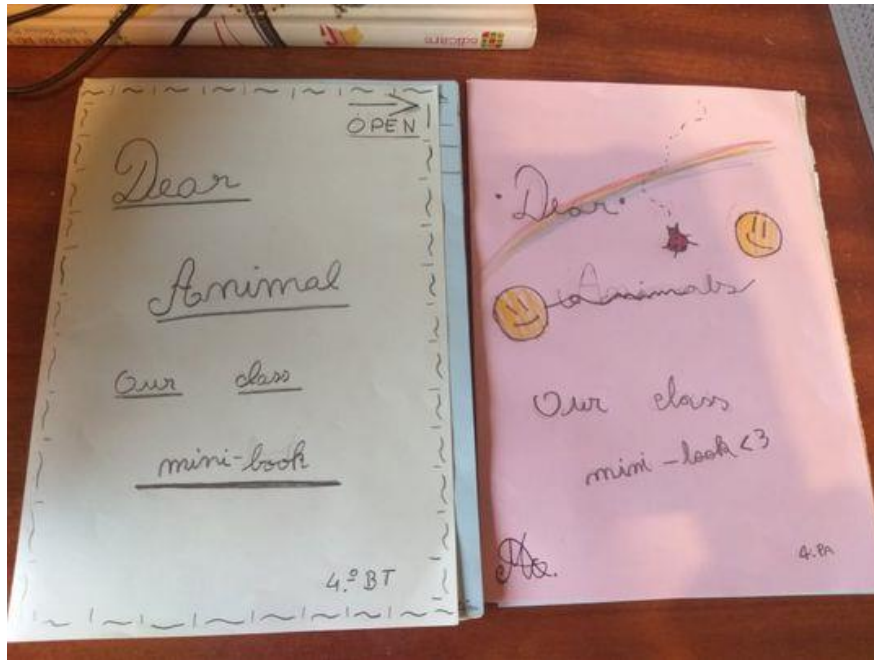 edicare
OPEN
Dear
Animal
Our class
mini-book
4.º BT
• Dear •
Animals
Our class
mini-book <3
4.PA